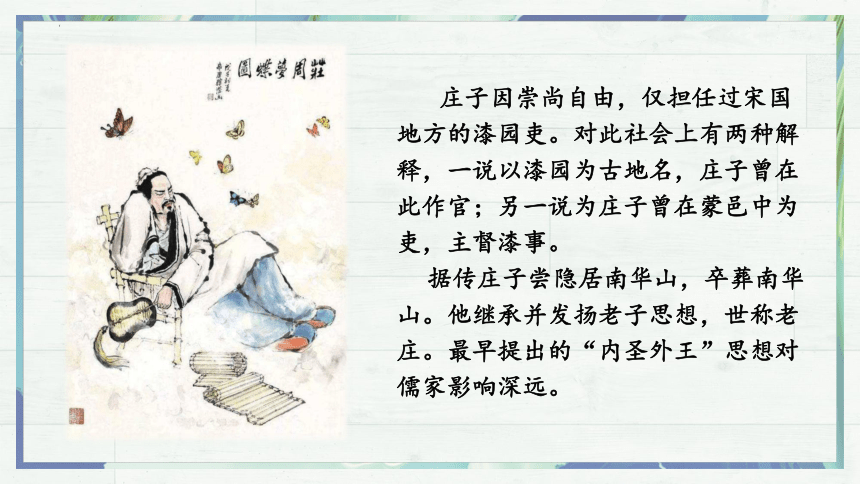 莊周夢蝶圖
庄子因崇尚自由，仅担任过宋国
地方的漆园吏。对此社会上有两种解
释，一说以漆园为古地名，庄子曾在
此作官；另一说为庄子曾在蒙邑中为
吏，主督漆事。
据传庄子尝隐居南华山，卒葬南华
山。他继承并发扬老子思想，世称老
庄。最早提出的“内圣外王”思想对
儒家影响深远。